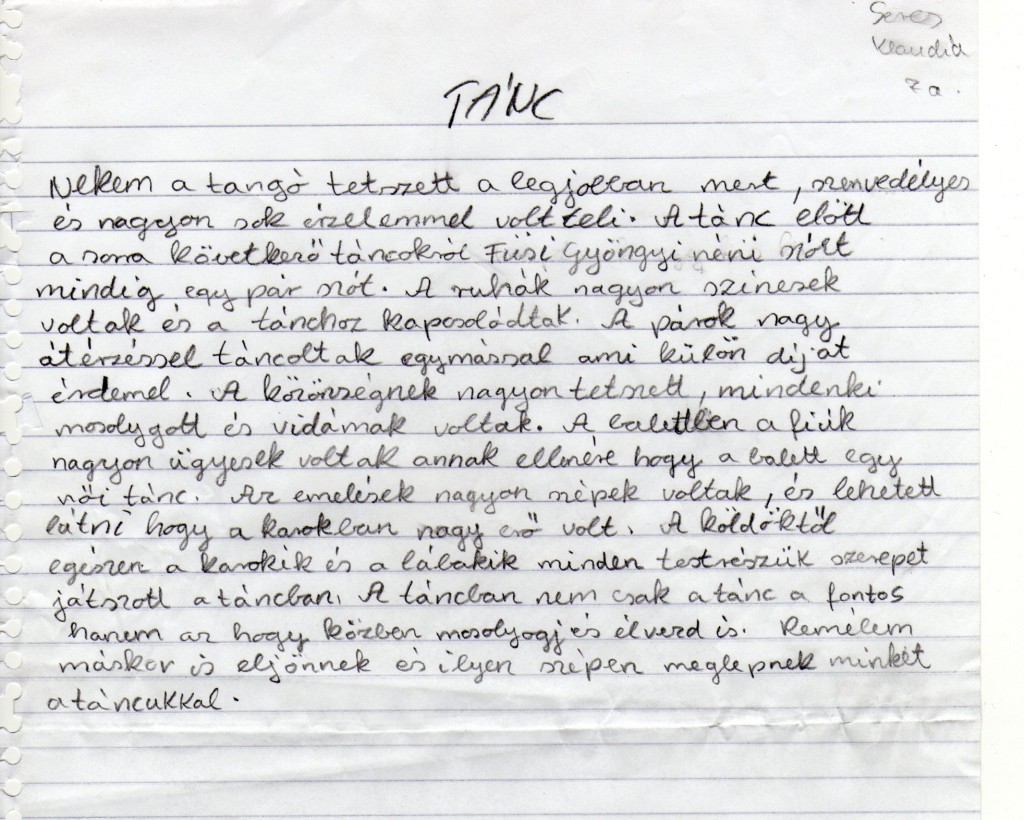 Seres
Klaudia
7.a.
TÁNC
Nekem a tangó tetszett a legjobban mert, szenvedélyes
és nagyon sok érzelemmel volt teli. A tánc előtt
a sorra következő táncokról Füsi Gyöngyi néni szólt
mindig egy pár szót. A ruhák nagyon színesek
voltak és a tánchoz kapcsolódtak. A párok nagy
átérzéssel táncoltak egymással ami külön díjat
érdemel. A közönségnek nagyon tetszett, mindenki
mosolygott és vidámak voltak. A balettben a fiúk
nagyon ügyesek voltak annak ellenére hogy a balett egy
női tánc. Az emelések nagyon szépek voltak, és lehetett
látni hogy a karokban nagy erő volt. A köldöktől
egészen a karokik és a lábakik minden testrészük szerepet
játszott a táncban. A táncban nem csak a tánc a fontos
hanem az hogy közben mosolyogj és élvezd is. Remélem
máskor is eljönnek és ilyen szépen meglepnek minket
a táncukkal.